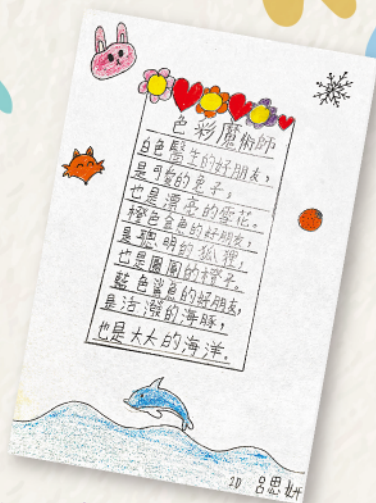 色彩魔術師
白色醫生的好朋友，
是可愛的兔子，
也是漂亮的雪花。
橙色金魚的好朋友，
是聰明的狐狸，
也是圓圓的橙子。
藍色鯊魚的好朋友，
是活潑的海豚，
也是大大的海洋。
2D 呂思妍